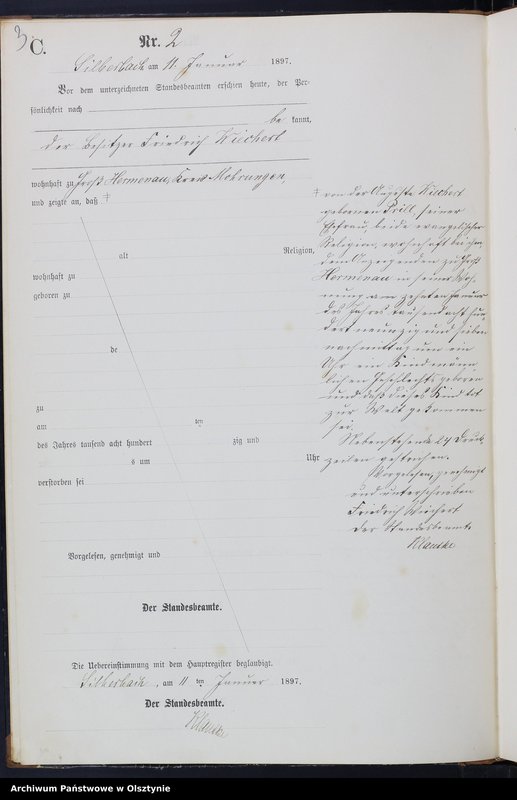 3
C.
Nr. 2
Silberbach am 11. Januar 1897.
Vor dem unterzeichneten Standesbeamten erschien heute, der Per-
sönlichkeit nach
be kannt,
der Besitzer Friedrich Wiechert
wohnhaft zu Groß Hermenau, Kreis Mohrungen,
und zeigte an, daß ‡
alt Religion,
wohnhaft zu
geboren zu
de
zu
am ten
des Jahres tausend acht hundert zig und
s um Uhr
verstorben sei
Vorgelesen, genehmigt und
Der Standesbeamte.
Die Uebereinstimmung mit dem Hauptregister beglaubigt.
Silberbach, am 11 ten Januar 1897.
Der Standesbeamte.
Klautke
‡ von der Auguste Wiechert
gebornen Prill, seiner
Ehefrau, beide evangelischer
Religion, wohnhaft bei ihm
dem Anzeigenden zu Groß
Hermenau in seiner Woh-
nung am zehnten Januar
des Jahres tausend acht hun-
dert neunzig und sieben
nachmittag um ein
Uhr ein Kind männ-
lichen Geschlechts geboren
und daß dieses Kind tot
zur Welt gekommen
sei.
Nebenstehende 24 Druck-
zeilen gestrichen.
Vorgelesen, genehmigt
und unterschrieben
Friedrich Wiechert
Der Standesbeamte
Klautke
Archiwum Państwowe w Olsztynie